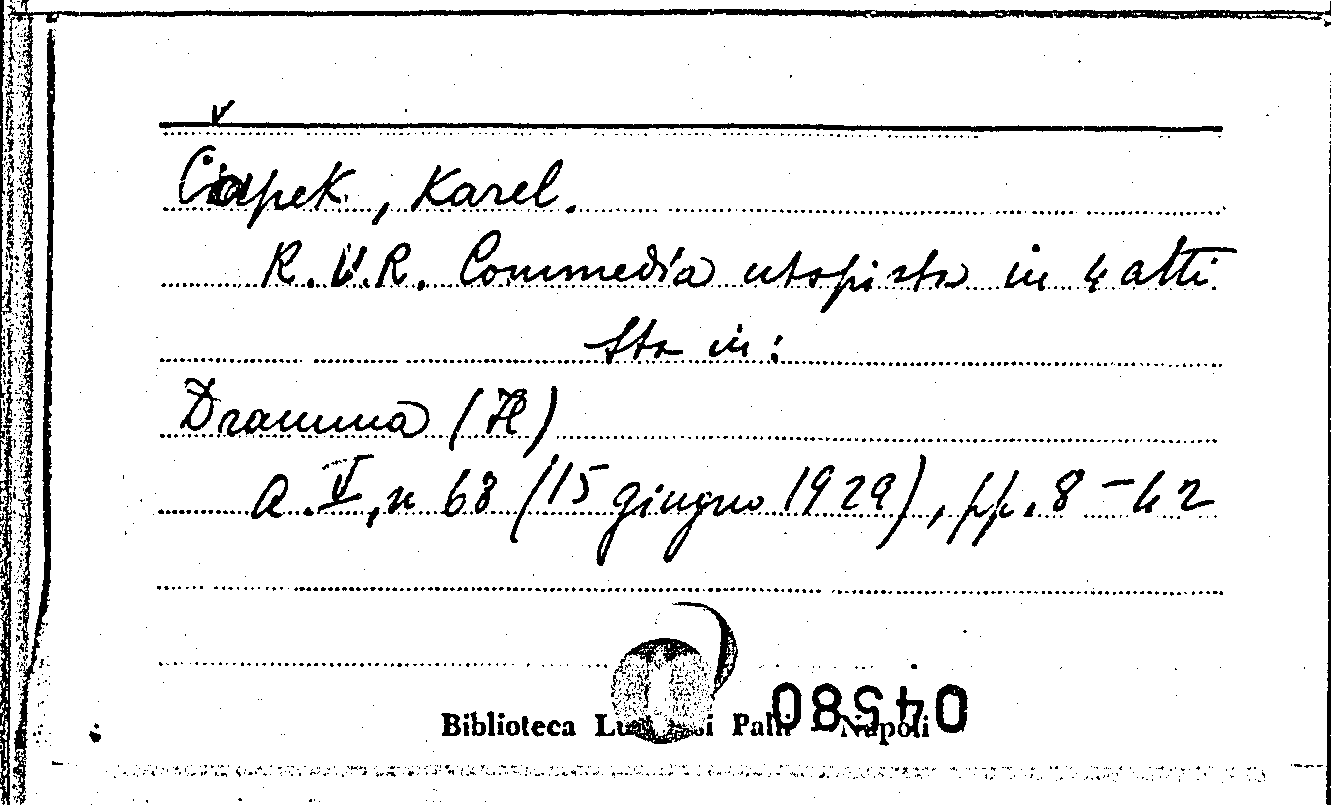 Čapek, Karel.
R.U.R. Commedia utopista in 4 atti
Sta in:
Dramma (Il)
a. V, n 68 (15 giugno 1929), pp. 8-42
Biblioteca Lucchesi Palli - Napoli
04580